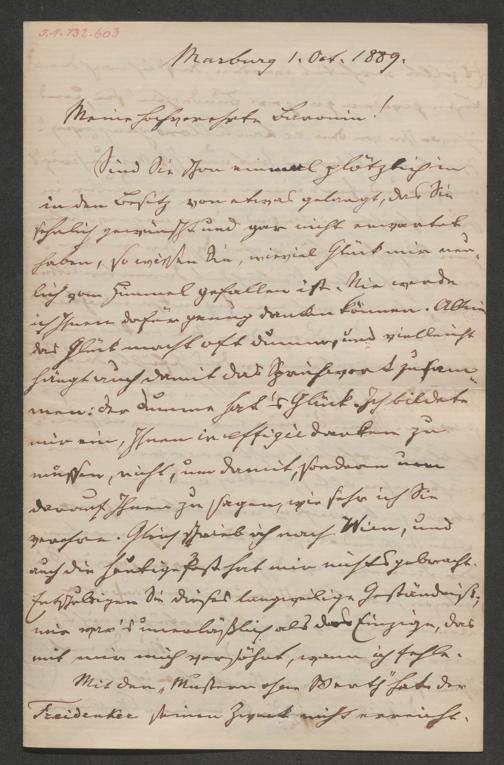 I.N. 132.603
Marburg 1. Oct. 1889.
Meine hochverehrte Baronin!
Sind Sie schon einmal plötzlich in
in den Besitz von etwas gelangt, das Sie
sehnlich gewünscht und gar nicht erwartet
haben, so wissen Sie, wieviel Glück mir neu-
lich vom Himmel gefallen ist. Nie werde
ich Ihnen dafür genug danken können. Allein
das Glück macht oft dumm, und vielleicht
hängt auch damit das Sprichwort zusam-
men: der Dumme hat's Glück. Ich bildete
mir ein, Ihnen in effigie danken zu
müssen, nicht, um damit, sondern um
darauf Ihnen zu sagen, wie sehr ich Sie
verehre. Gleich schrieb ich nach Wien, und
auch die heutige Post hat mir nichts gebracht.
Entschuldigen Sie dieses langweilige Geständniß;
mir war's unerläßlich als das Einzige, das
mit mir mich versöhnt, wenn ich fehle.
Mit den „Mustern ohne Werth" hat der
Freidenker seinen Zweck nicht erreicht.